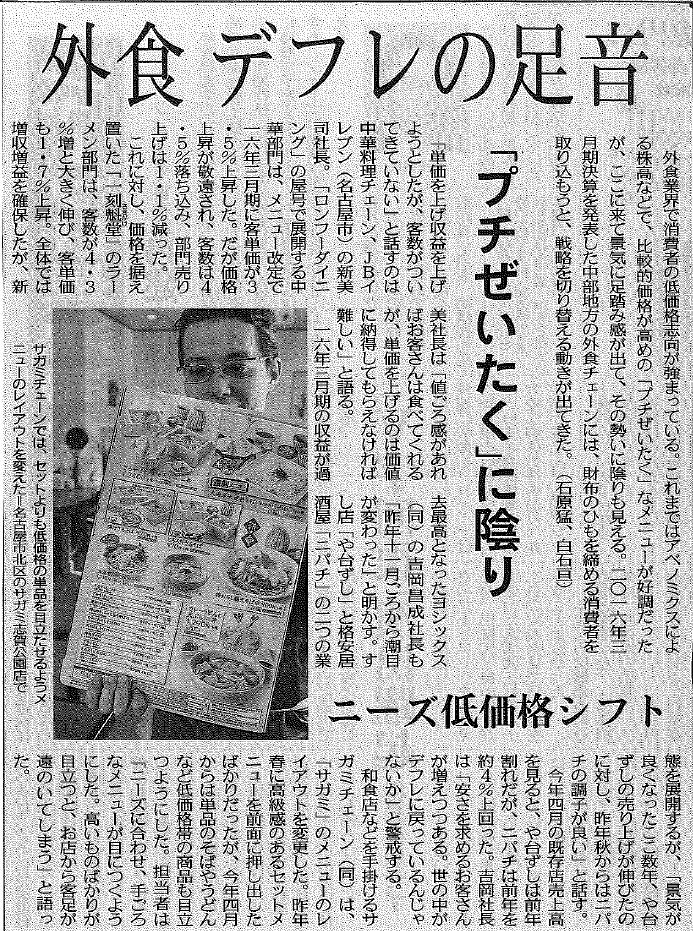 外食 デフレの足音
「プチぜいたく」に陰り
ニーズ低価格シフト
外食業界で消費者の低価格志向が強まっている。これまではアベノミクスによ
る株高などで、比較的価格が高めの「プチぜいたく」なメニューが好調だった
が、ここに来て景気に足踏み感が出て、その勢いに陰りも見える。二〇一六年三
月期決算を発表した中部地方の外食チェーンには、財布のひもを締める消費者を
取り込もうと、戦略を切り替える動きが出てきた。（石原猛、白石亘）
「単価を上げ収益を上げ
ようとしたが、客数がつい
てきていない」と話すのは
中華料理チェーン、ＪＢイ
レブン（名古屋市）の新美
司社長。「ロンフーダイニ
ング」の屋号で展開する中
華部門は、メニュー改定で
一六年三月期に客単価が３
・５％上昇した。だが価格
上昇が敬遠され、客数は４
・５％落ち込み、部門売り
上げは１・１％減った。
これに対し、価格を据え
置いた「一刻魁堂」のラー
メン部門は、客数が４・３
％増と大きく伸び、客単価
も１・７％上昇。全体では
増収増益を確保したが、新
美社長は「値ごろ感があれ
ばお客さんは食べてくれる
が、単価を上げるのは価値
に納得してもらえなければ
難しい」と語る。
一六年三月期の収益が過
去最高となったヨシックス
（同）の吉岡昌成社長も
「昨年十一月ごろから潮目
が変わった」と明かす。す
し店「や台ずし」と格安居
酒屋「ニパチ」の二つの業
態を展開するが、「景気が
良くなったここ数年、や台
ずしの売り上げが伸びたの
に対し、昨年秋からはニパ
チの調子が良い」と話す。
今年四月の既存店売上高
を見ると、や台ずしは前年
割れだが、ニパチは前年を
約４％上回った。吉岡社長
は「安さを求めるお客さん
が増えつつある。世の中が
デフレに戻っているんじゃ
ないか」と警戒する。
和食店などを手掛けるサ
ガミチェーン（同）は、
「サガミ」のメニューのレ
イアウトを変更した。昨年
春に高級感のあるセットメ
ニューを前面に押し出した
ばかりだったが、今年四月
からは単品のそばやうどん
など低価格帯の商品も目立
つようにした。担当者は
「ニーズに合わせ、手ごろ
なメニューが目につくよう
にした。高いものばかりが
目立つと、お店から客足が
遠のいてしまう」と語っ
た。
サガミチェーンでは、セットよりも低価格の単品を目立たせるようメ
ニューのレイアウトを変えた＝名古屋市北区のサガミ志賀公園店で